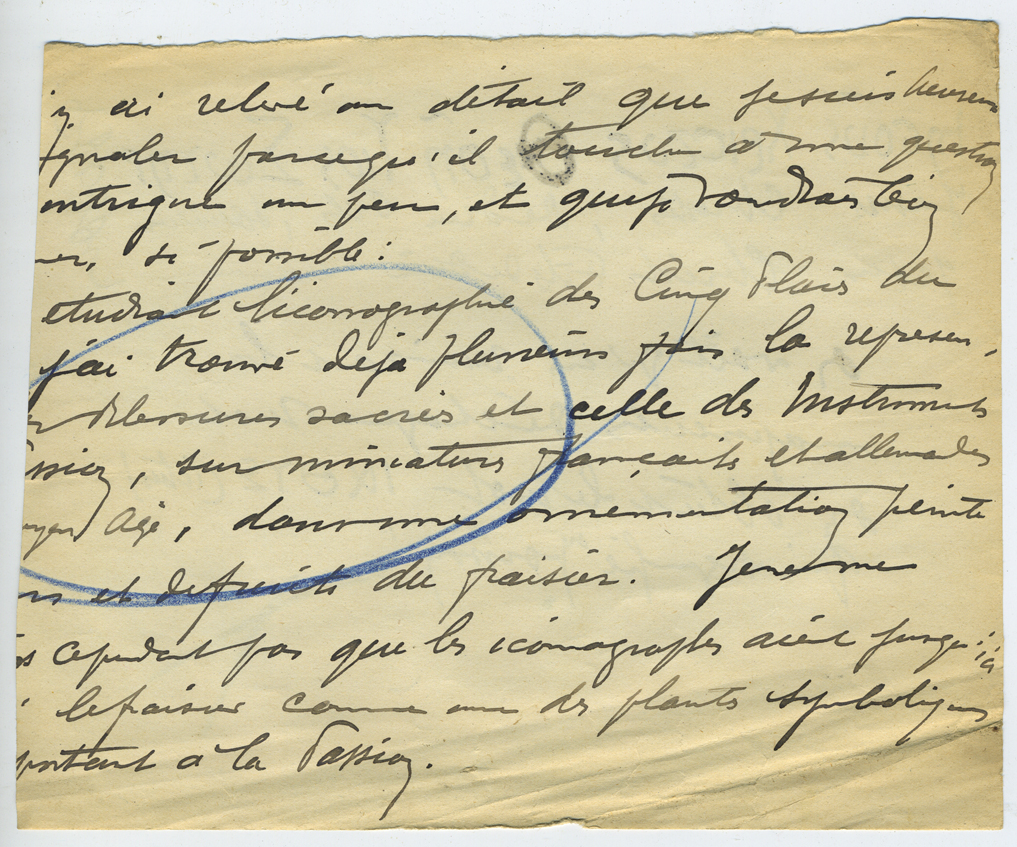 y ai relevé un détail que je suis heureux
ignaler parcequ'il touche à une question
intrigue un peu, et que je voudrais bien
er, si possible:
etudiant l'iconographie des Cinq Plaies du
j'ai trouvé déjà plusieurs fois la représen-
Blessures sacrées et celle des Instruments
ssion, sur miniatures françaises et allemandes
oyen Age, dans une ornementation peinte
rs et de fruits du fraisier. Je ne me
is cependant pas que les iconographes aient jusqu'ici
le fraisier comme une des plantes symboliques
portant à la Passion.